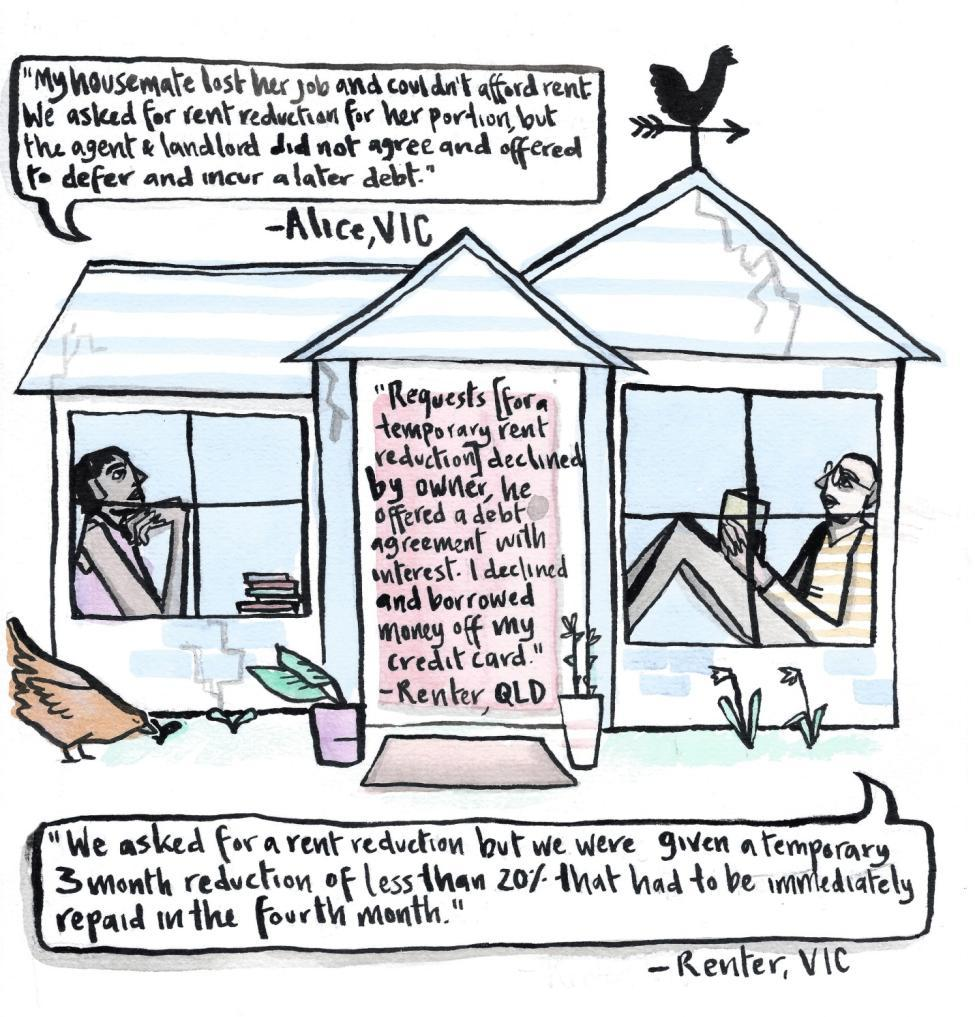 "My housemate lost her job and couldn't afford rent
We asked for rent reduction for her portion, but
the agent & landlord did not agree and offered
to defer and incur a later debt."
-Alice, VIC
"Requests [for a
temporary rent
reduction] declined
by owner, he
offered a debt
agreement with
interest. I declined
and borrowed
money off my
credit card."
-Renter, QLD
"We asked for a rent reduction but we were given a temporary
3 month reduction of less than 20% that had to be immediately
repaid in the fourth month."
-Renter, VIC